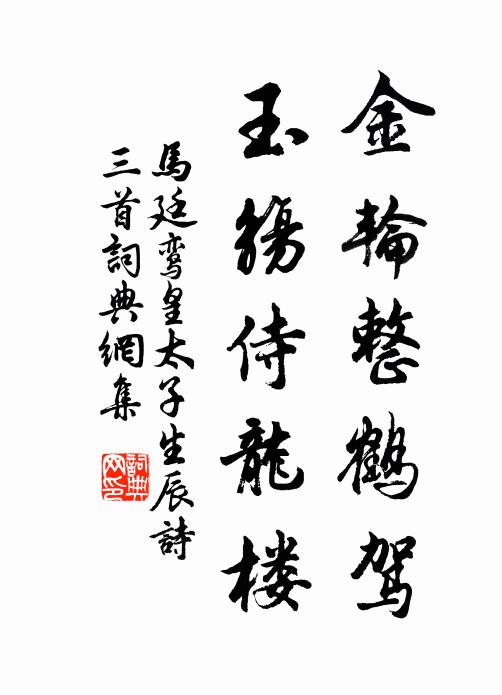 金輪整鶴驾
玉觴侍龍楼
馬廷鸾皇太子生辰詩
三首詞典網集
詞典
网印